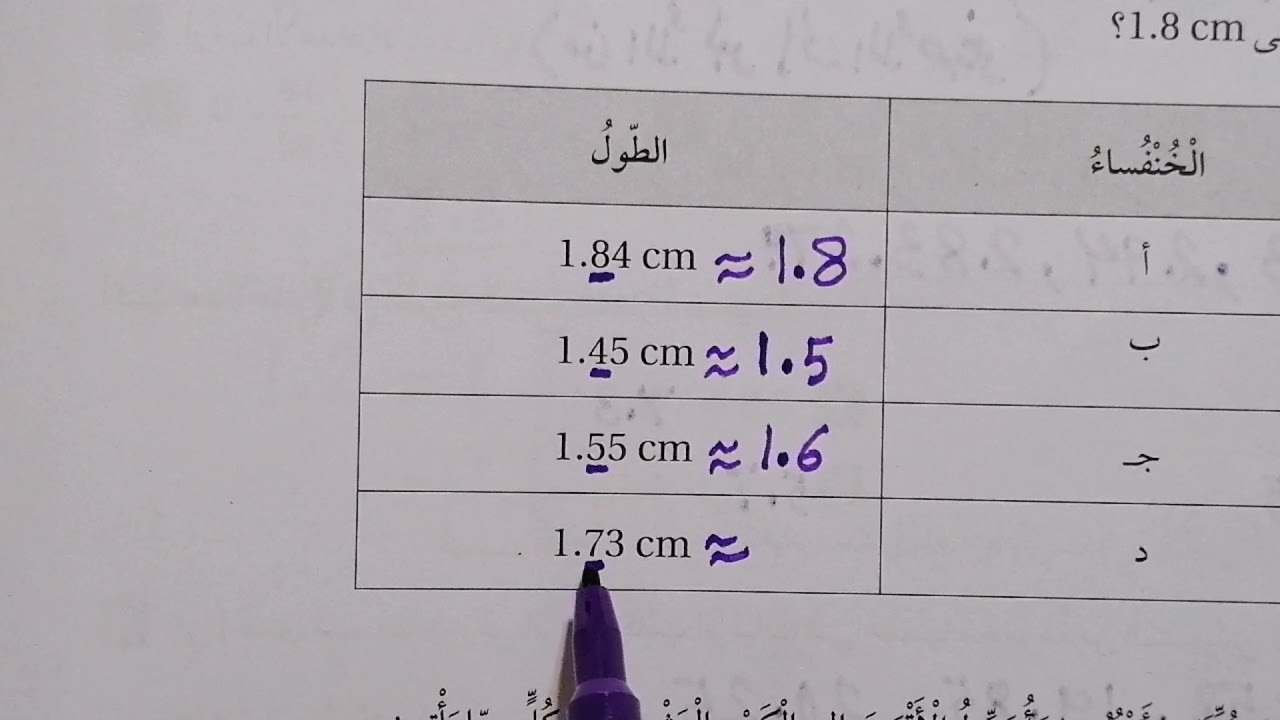 1.8 cm؟
الْخُنْفُساءُ الطّولُ
أ 1.84 cm ≈ 1.8
ب 1.45 cm ≈ 1.5
جـ 1.55 cm ≈ 1.6
د 1.73 cm ≈